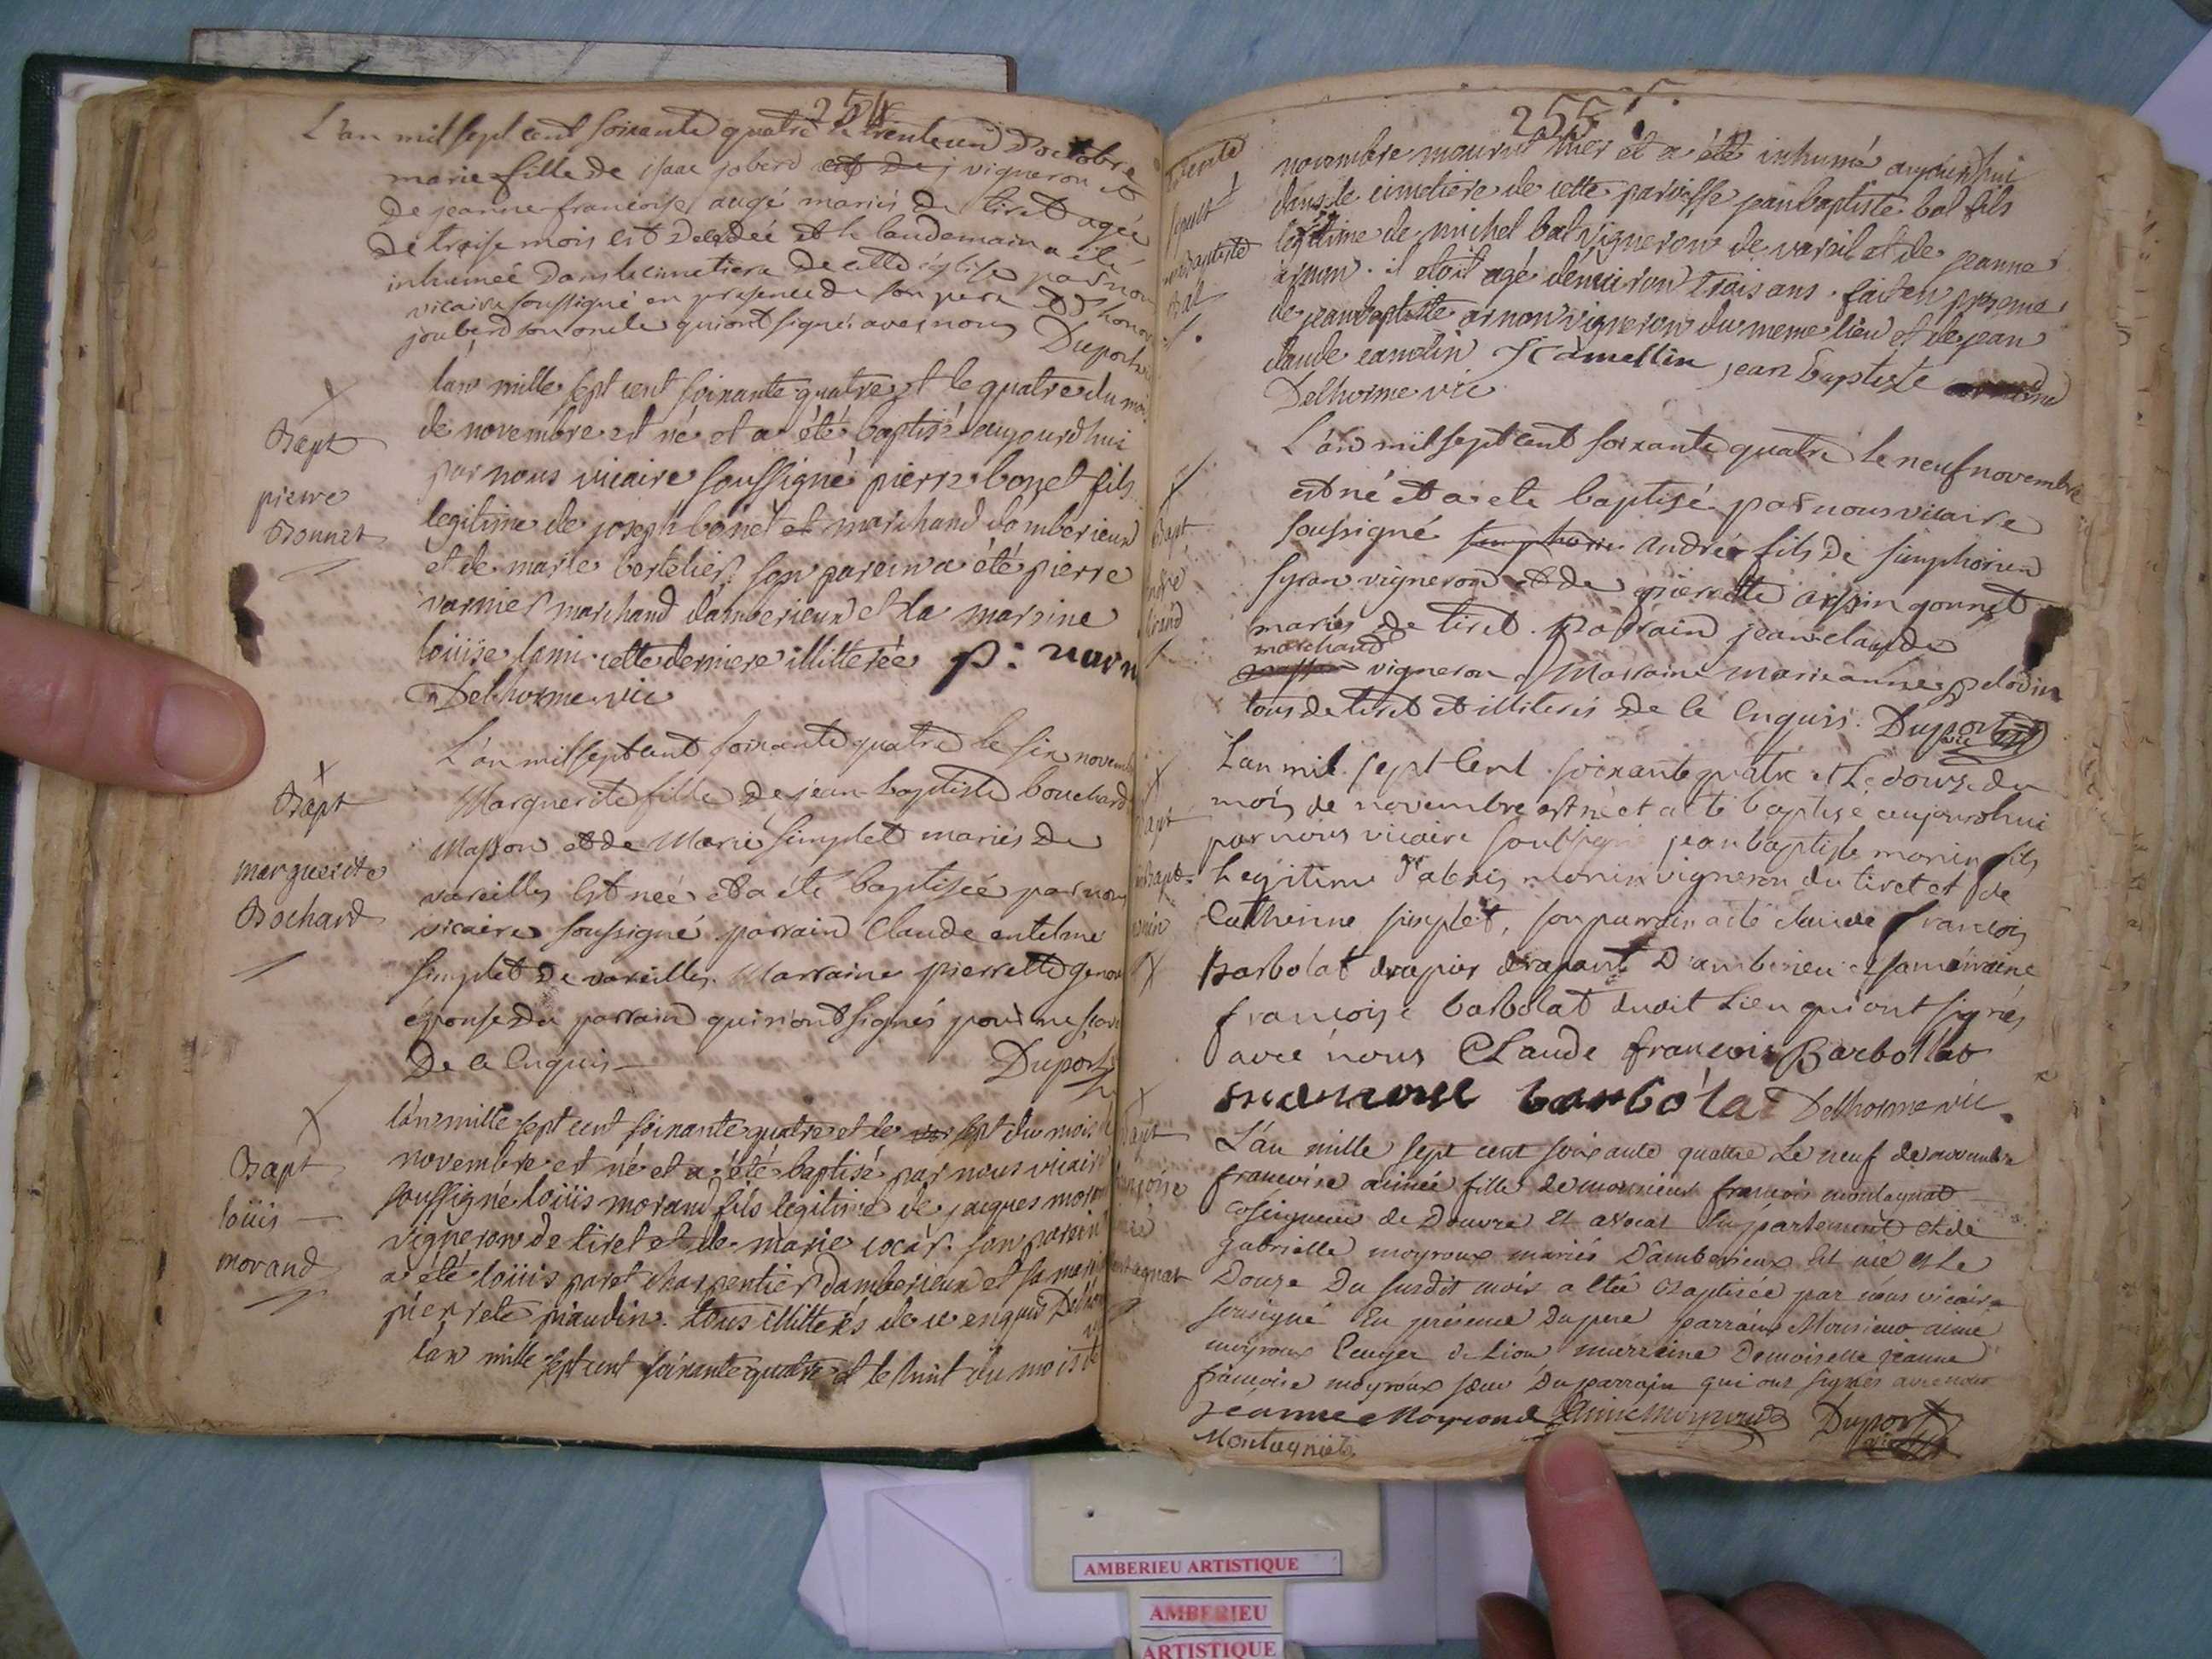 254
L'an mil sept cent soixante quatre le trente un d'octobre
marie fille de isaac joberd vigneron et
de jeanne francoise augé mariés de tiret agée
de troise mois est decedée et le landemain a été
inhumée dans le cimetiere de cette église par nou
vicaire soussigné en presence de son pere
jouberd son oncle qui ont signé avec nous Duport
l'an mille sept cent soixante quatre et le quatre du moi
Bapt
de novembre est né et a été baptisé augourdhui
par nous vicaire soussigné pierre bonet fils
pierre
legitime de joseph bonet et marchand damberieux
Bonnet
et de marie bertelier son parein a été pierre
varnier marchand damberieux et la mareine
loüise lami cette derniere illitterée p: varn
Delhorme vic
L'an mil sept cent soixante quatre le six novemb
Bapt
Marguerite fille de jean baptiste bouchard
masson et de Marie simplet mariés de
marguerite
vareilles est née et a été baptisée par nous
Bochard
vicaire soussigné parrain Claude antelme
simplet de vareilles. Marraine pierrette
épouse du parrain qui n'ont signés pour ne
De ce Enquis Duport
l'an mille sept cent soixante quatre et le sept du mois
Bapt
novembre est né et a été baptisé par nous vicaire
loüis
soussigné loüis morand fils legitime de jacques
morand
vigneron de tiret et de marie cocar. son parein
a été loüis paret charpentier damberieux et sa
pierrete piaudin. tous illitterés de ce enquis
l'an mille sept cent soixante quatre et le huit du mois
255
novembre mourut hier et a été inhumé aujourdhui
dans le cimetiere de cette paroisse jean baptiste bal fils
legitime de michel bal vigneron de vareil et de jeanne
arnon. il etoit agé denviron trois ans. fait en presence
de jean baptiste arnon vigneron du meme lieu et de jean
claude camelin J C camellin jean baptiste
Delhorme vic
L'an mil sept cent soixante quatre le neuf novembre
est né et a ete baptisé par nous vicaire
Bapt
soussigné andré fils de simphorien
vigneron et de pierrette
mariés de tiret. Parrain jean claude
marchand
vigneron Marraine marie anne
tous de tiret et illiterés de ce Enquis. Duport
vic
L'an mil sept cent soixante quatre et le douze du
mois de novembre est né et a ete baptisé aujourdhui
par nous vicaire soussigné jean baptiste monin fils
Légitime d'alexis monin vigneron du tiret et de
Catherine simplet, son parrain a ete claude francois
Barbolat drapier drapant D'amberieu et sa maraine
francoise barbolat dudit Lieu qui ont signés
avec nous Claude francois Barbollat
barbola Delhorme vic
L'an mille sept cent soixante quattre Le neuf de novembre
francoise aimée fille de monsieur francois montagnat
coseigneur de Douvre et avocat En parlement et de
Gabrielle moyroux mariés D'amberieux Est née et Le
Douze Du susdit mois a été Baptisée par nous vicaire
sousigné En présence Du pere parrain Monsieur aimé
moyroux Ecuyer de Lion marraine Demoiselle jeanne
francoise moyroux sœur Du parrain qui ont signés avec nous
jeanne Moyroud Aimé Moyroud Duport
Montagniat
AMBERIEU ARTISTIQUE
AMBERIEU
ARTISTIQUE